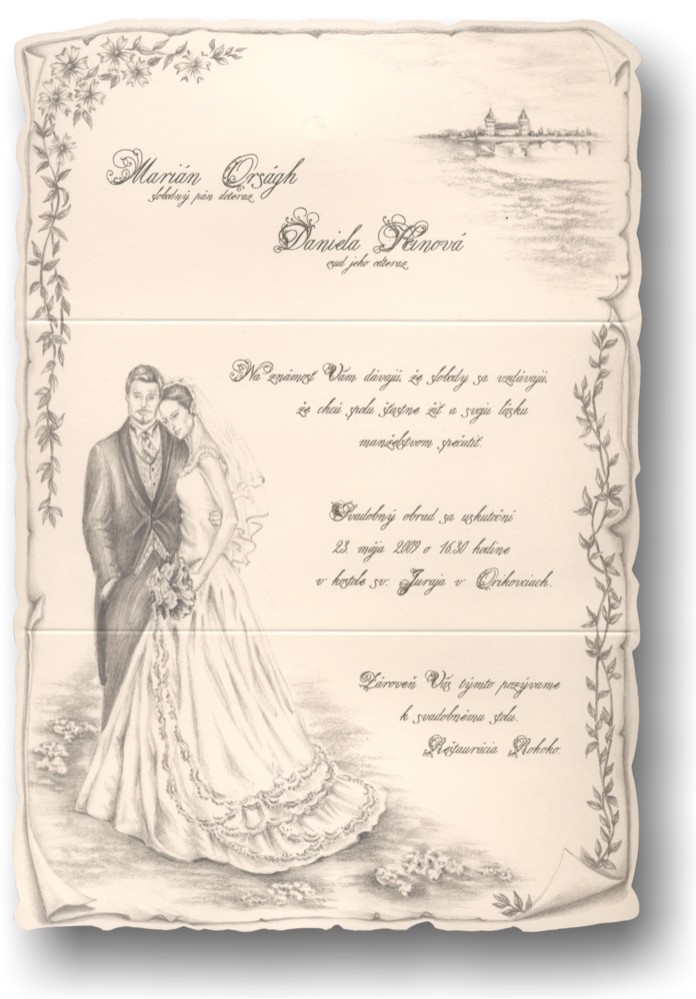 Marián Orságh
slobodný pán doteraz
Daniela
cud jeho odteraz
Na známosť Vám dávajú, že slobody sa vzdávajú,
že chcú spolu šťastne žiť a svoju lásku
manželstvom spečatiť.
Svadobný obrad sa uskutoční
23. mája 2009 o 16.30 hodine
v kostole sv. Juraja v
Zároveň Vás týmto pozývame
k svadobnému stolu.
Reštaurácia Rokoko.